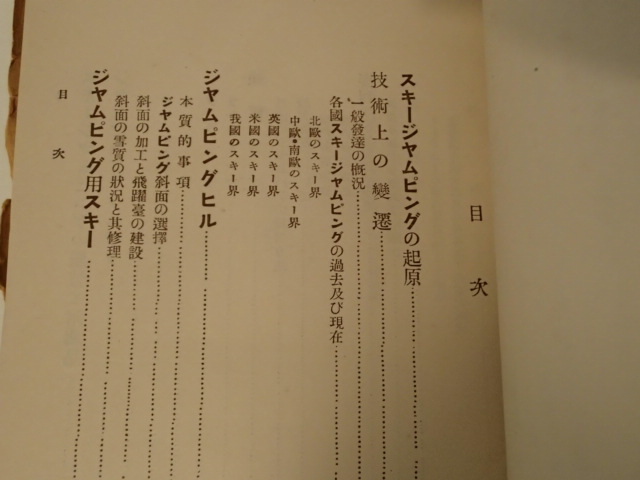 目次
スキージャムピングの起原
技術上の變遷
一般發達の槪況
各國スキージャムピングの過去及び現在
北歐のスキー界
中歐・南歐のスキー界
英國のスキー界
米國のスキー界
我國のスキー界
ジャムピングヒル
本質的事項
ジャムピング斜面の選擇
斜面の加工と飛躍臺の建設
斜面の雪質の狀況と其修理
ジャムピング用スキー
目次